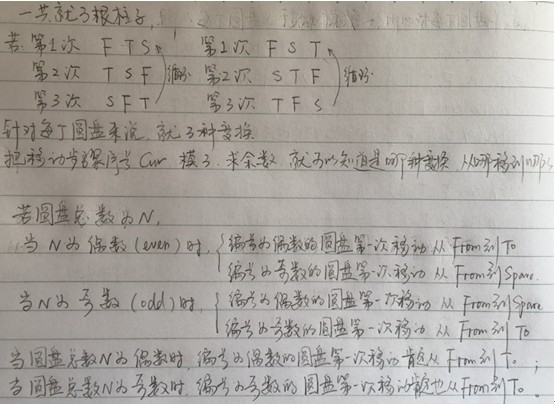 一共就3根柱子,
若: 第1次 F T S 第1次 F S T
第2次 T S F 循环 第2次 S T F 循环
第3次 S F T 第3次 T F S
针对每个圆盘来说, 就3种变换
把移动步骤序号 Cur 模3, 求余数, 就可以知道是哪种变换, 从哪移到哪
若圆盘总数为N,
当 N 为 偶数 (even) 时, { 编号为偶数的圆盘第一次移动从 From 到 To
编号为奇数的圆盘第一次移动 从 From到 Spare.
当N为 奇数 (odd) 时, { 编号为偶数的圆盘第一次移动 从 From到 Spare
编号为奇数的圆盘第一次移动 从 From到 To
当圆盘总数N为偶数时, 编号为偶数的圆盘第一次移动肯定从 From到 To ;
当圆盘总数N为奇数时, 编号为奇数的圆盘第一次移动肯定也从 From到 To 。